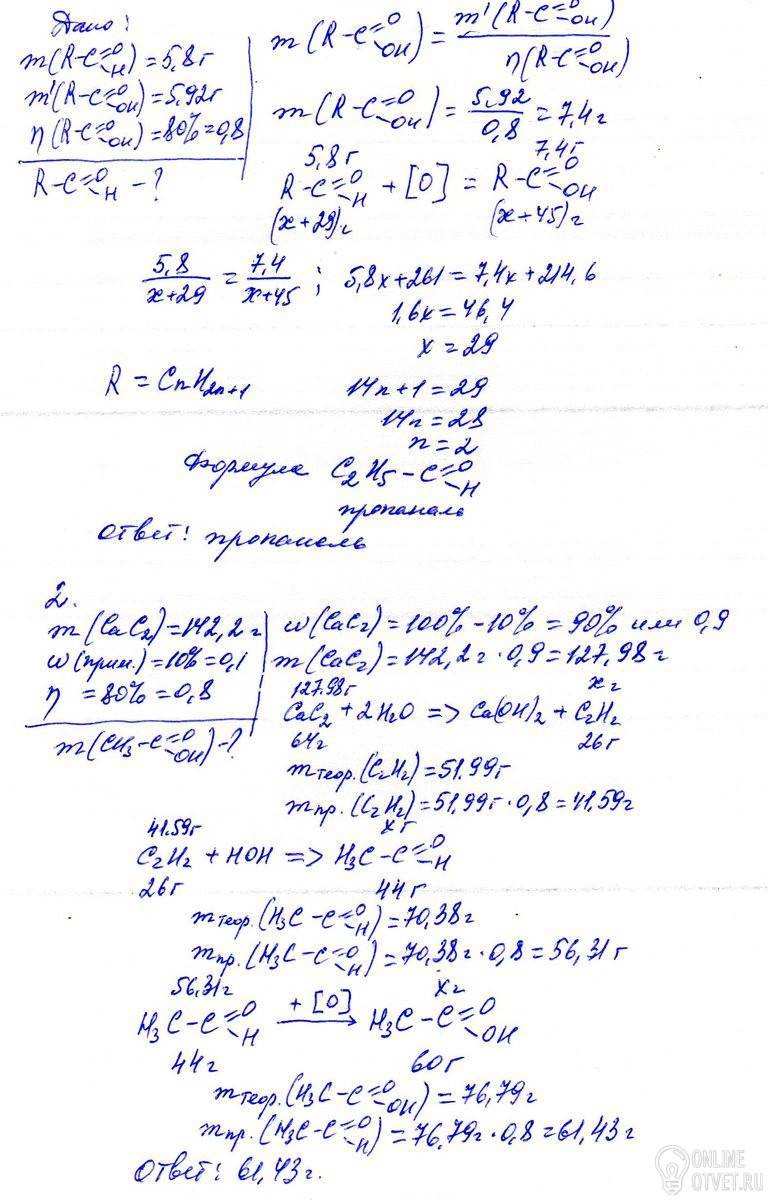 Дано:
m(R-C=O-H)=5,8г
m'(R-C=O-OH)=5,92г
η(R-C=O-OH)=80%=0,8
R-C=O-H-?
m(R-C=O-OH)=m'(R-C=O-OH)/η(R-C=O-OH)
m(R-C=O-OH)=5,92/0,8=7,4г
5,8г 7,4г
R-C=O-H+[O]=R-C=O-OH
(x+29)г (x+45)г
5,8/x+29=7,4/x+45; 5,8x+261=7,4x+214,6
1,6x=46,4
x=29
R=CnH2n+1 14n+1=29
14n=28
n=2
Формула C2H5-C=O-H
пропаналь
Ответ: пропаналь
2.
m(CaC2)=142,2г
w(прим.)=10%=0,1
η=80%=0,8
m(CH3-C=O-OH)-?
w(CaC2)=100%-10%=90% или 0,9
m(CaC2)=142,2г·0,9=127,98г
127.98г xг
CaC2+2H2O=>Ca(OH)2+C2H2
64г 26г
mтеор.(C2H2)=51.99г
mпр.(C2H2)=51.99г·0,8=41.59г
41.59г xг
C2H2+HOH=>H3C-C=O-H
26г 44г
mтеор.(H3C-C=O-H)=70,38г
mпр.(H3C-C=O-H)=70,38г·0,8=56,31г
56,31г xг
H3C-C=O-H +[O]→ H3C-C=O-OH
44г 60г
mтеор.(H3C-C=O-OH)=76,79г
mпр.(H3C-C=O-H)=76,79г·0,8=61,43г
Ответ: 61,43г.
ONLINE
OTVET.RU